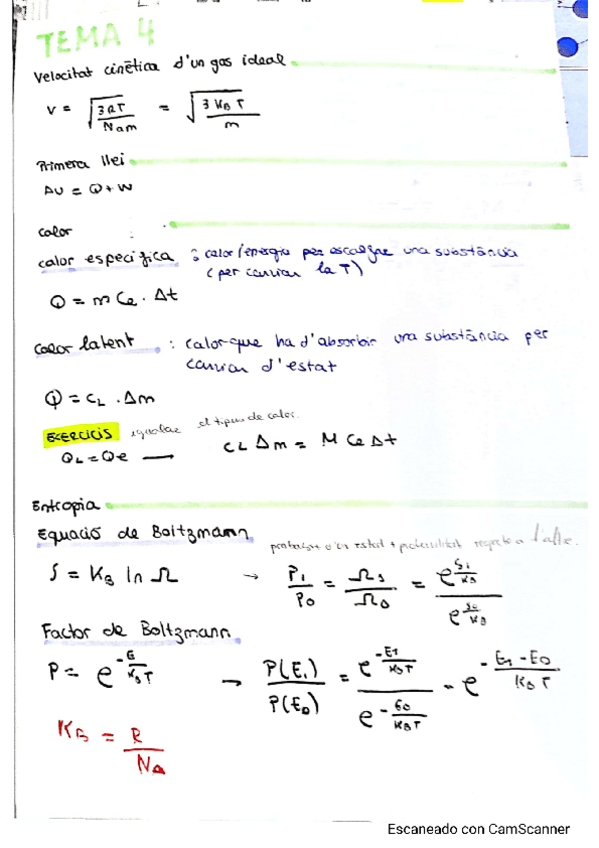 TEMA 4
Velocitat cinètica d'un gas ideal
v = √(3RT / Nam) = √(3 KB T / m)
Primera llei
ΔU = Q + W
calor
calor especifica : calor/energia per escalfar una substància
(per canviar la T)
Q = m Ce · Δt
Calor latent : calor que ha d'absorbir una substància per
canviar d'estat
Q = CL · Δm
EXERCICIS igualar el tipus de calor.
QL = Qe → CL Δm = M Ce Δt
Entropia
Equació de Boltzmann
estat + probabilitat respecte a l'altre.
S = KB ln Ω → P1/P0 = Ω1/Ω0 = e^(S1/KB) / e^(S0/KB)
Factor de Boltzmann
P = e^(-E/KBT) → P(E1)/P(E0) = e^(-E1/KBT) / e^(-E0/KBT) = e^(-(E1-E0)/KBT)
KB = R/NA
Escaneado con CamScanner